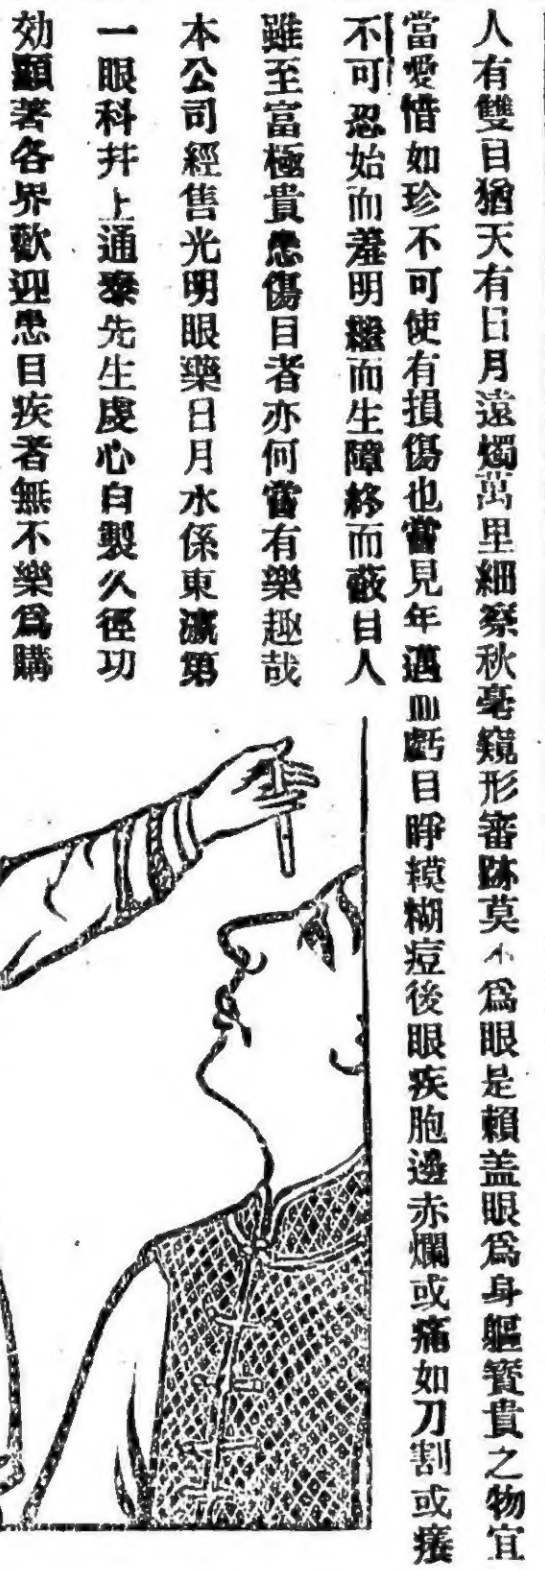 人有雙目猶天有日月遠燭萬里細察秋毫窺形審跡莫不爲眼是賴盖眼爲身軀寳貴之物宜
當愛惜如珍不可使有損傷也嘗見年邁血虧目睜糢糊痘後眼疾胞邊赤爛或痛如刀割或癢
不可忍始而羞明繼而生障終而蔽目人
雖至富極貴患傷目者亦何嘗有樂趣哉
本公司經售光明眼藥日月水係東瀛第
一眼科井上通泰先生虔心自製久徑功
効顯著各界歡迎患目疾者無不樂爲購